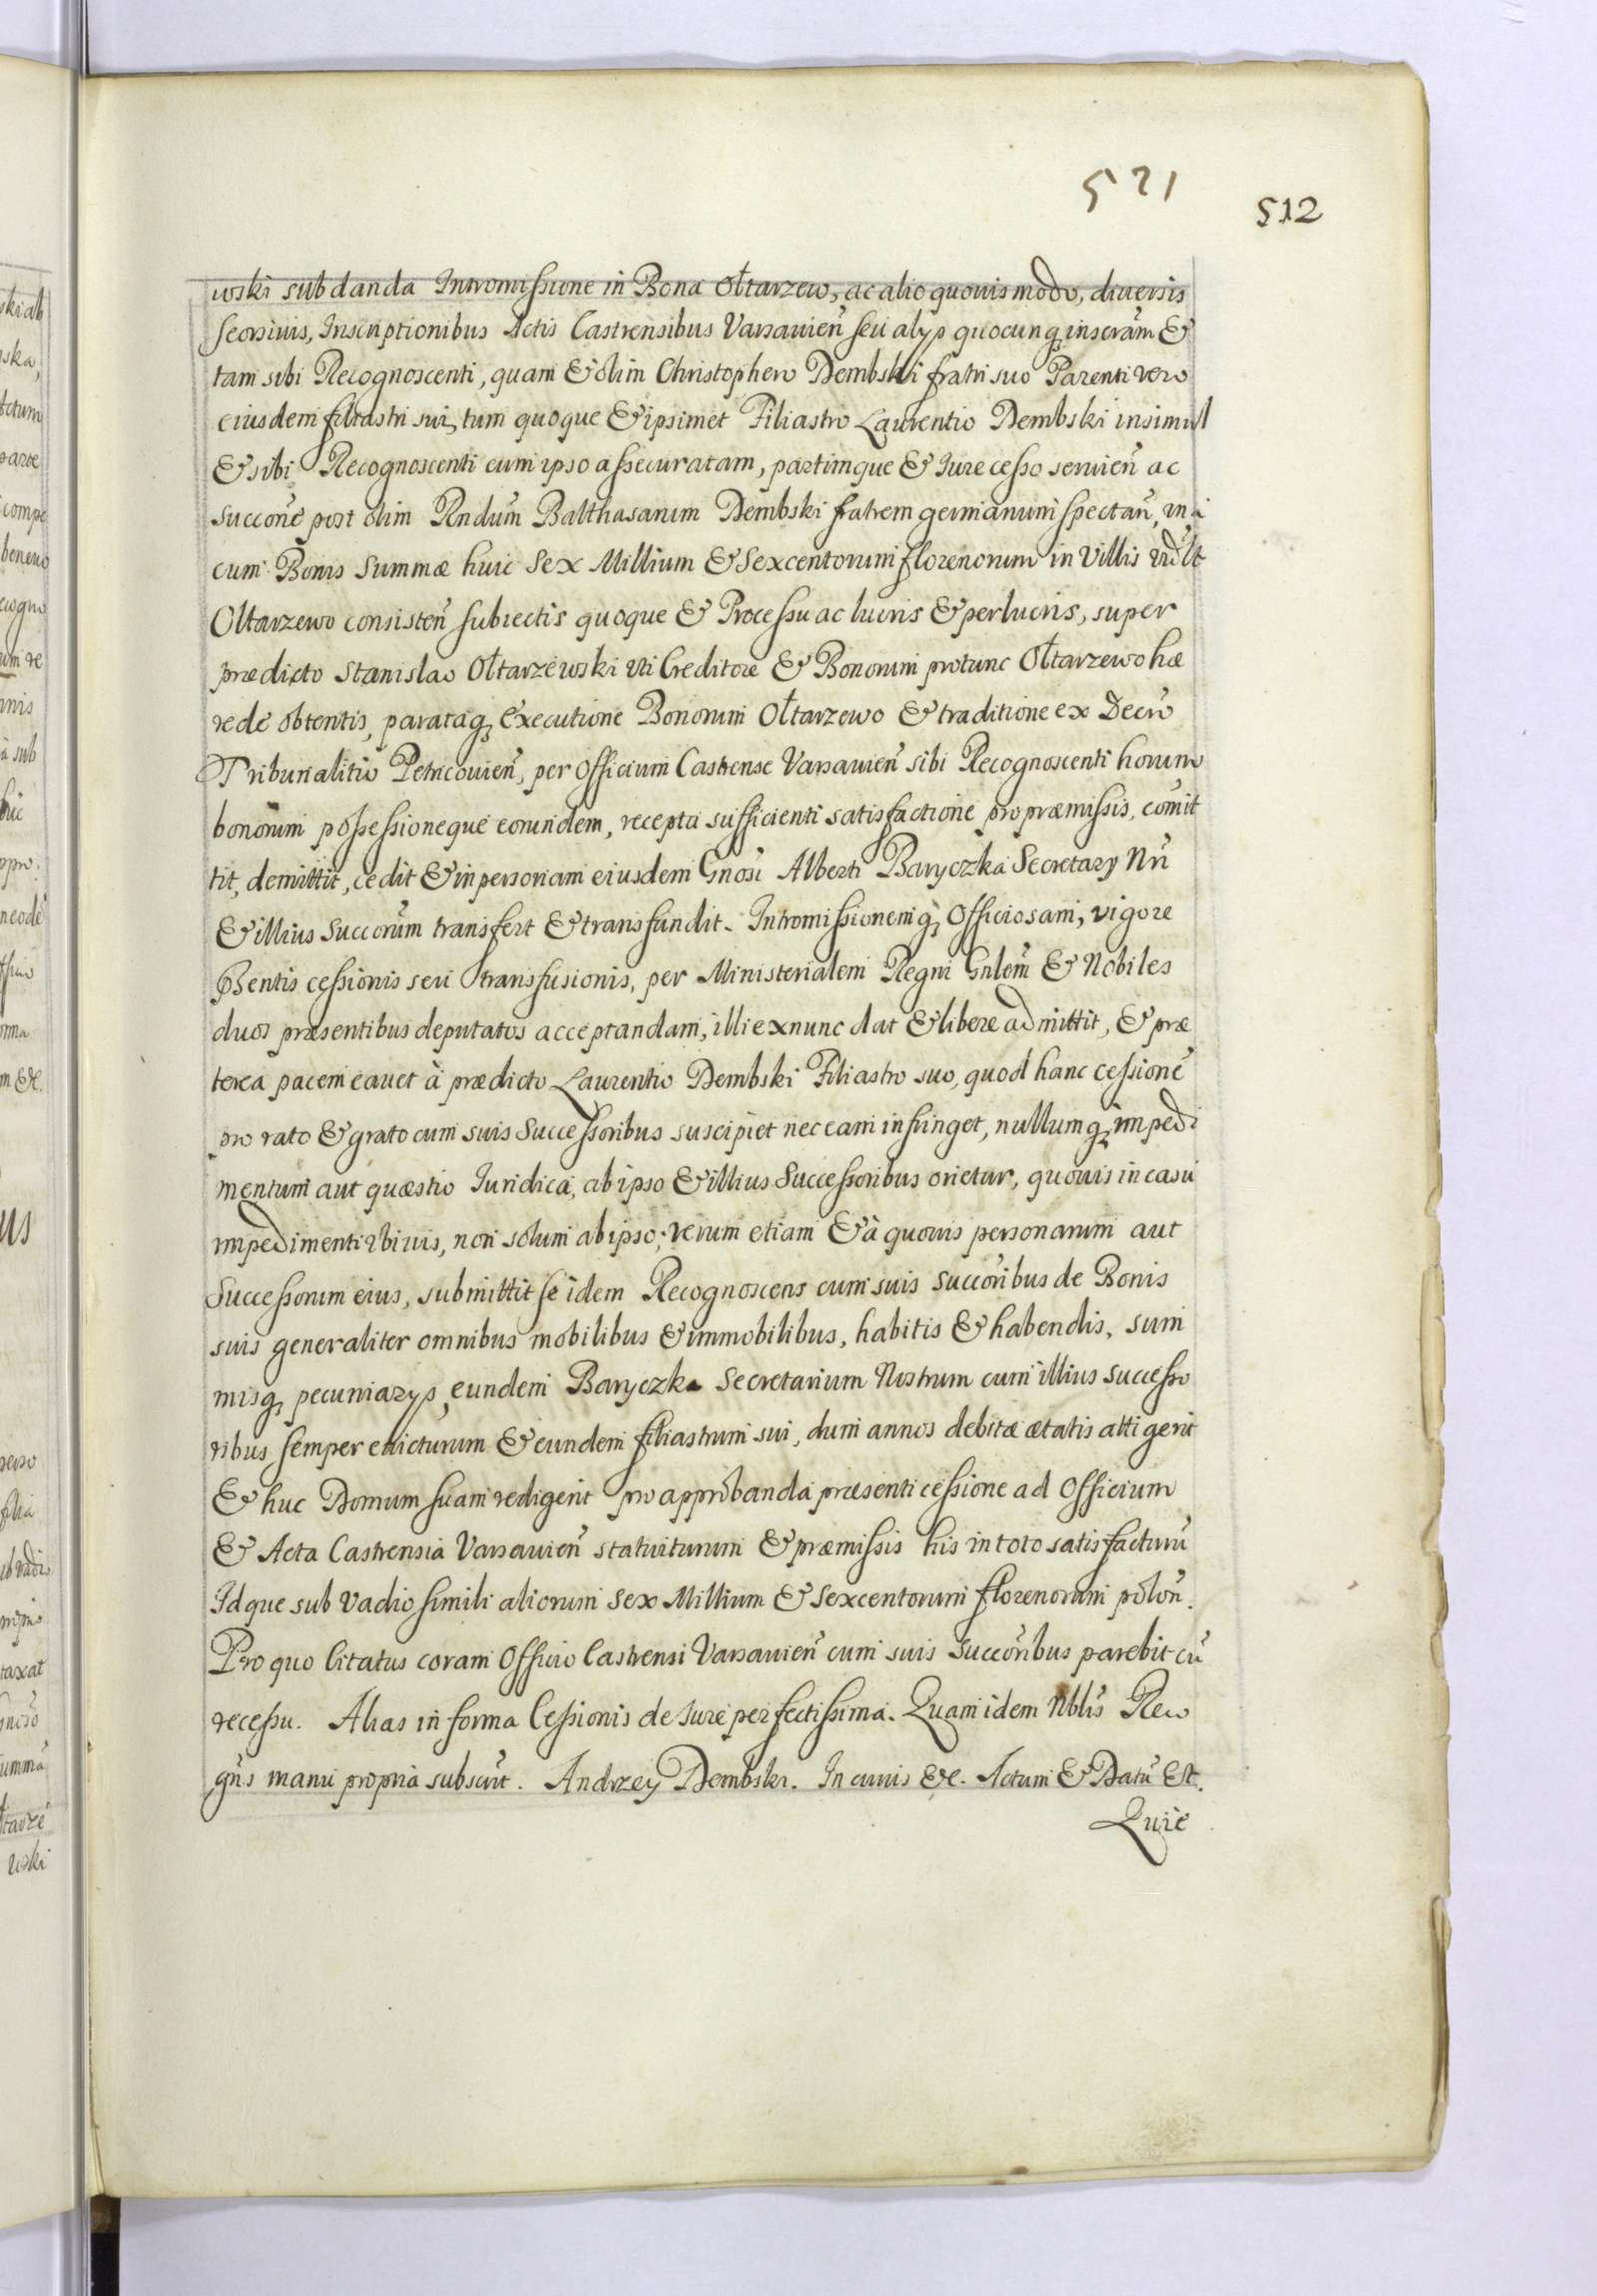 521
512
wski sub danda Intromissione in Bona Ołtarzew, ac alio quouis modo, diuersis
seorsiuis, Inscriptionibus Actis Castrensibus Varsauien̄ seu alys quocunq; inserām &
tam sibi Recognoscenti, quam & olim Christophero Dembski fratri suo Parenti vero
eiusdem filiastri sui, tum quoque & ipsimet Filiastro Laurentio Dembski insimul
& sibi Recognoscenti cum ipso assecuratam, partimque & Iure cesso seruien̄ ac
succōne post olim Rndūm Balthasarum Dembski fratrem germanum spectan̄, unà
cum Bonis Summæ huic Sex Millium & Sexcentorum florenorum in Villis vidlt
Ołtarzewo consisten̄ subiectis quoque & Processu ac lucris & perlucris, super
prædicto Stanislao Ołtarzewski vti Creditore & Bonorum protunc Ołtarzewo hæ
rede obtentis, parataq; Executione Bonorum Ołtarzewo & traditione ex Decr̄o
Tribunalitio Petricouien̄, per Officium Castrense Varsauien̄ sibi Recognoscenti horum
bonorum possessioneque eorundem, recepta sufficienti satisfactione pro præmissis, com̄it
tit, demittit, cedit & in personam eiusdem Gnosi Alberti Baryczka Secretary Nr̄i
& illius Succorūm transfert & transfundit. Intromissionemq; Officiosam, vigore
p̄sentis cessionis seu transfusionis, per Ministerialem Regni Gnlēm & Nobiles
duos præsentibus deputatos acceptandam, illi exnunc dat & libere admittit, & præ
terea pacem cauet à prædicto Laurentio Dembski Filiastro suo, quod hanc cessionē
pro rato & grato cum suis Successoribus suscipiet nec eam infringet, nullumq; impedi
mentum aut quæstio Iuridica, ab ipso & illius Successoribus orietur, quouis in casu
impedimenti vbiuis, non solum ab ipso; verum etiam & à quouis personarum aut
Successorum eius, submittit se idem Recognoscens cum suis succōribus de Bonis
suis generaliter omnibus mobilibus & immobilibus, habitis & habendis, sum
misq; pecuniarys, eundem Baryczka Secretarium Nostrum cum illius successo
ribus semper euicturum & eundem filiastrum sui, dum annos debitæ ætatis attigerit
& huc Domum suam redigerit pro approbanda præsenti cessione ad Officium
& Acta Castrensia Varsauien̄ statuiturum & præmissis his in toto satisfacturū
Idque sub Vadio simili aliorum Sex Millium & Sexcentorum florenorum polōn.
Pro quo Citatus coram Officio Castrensi Varsauien̄ cum suis succōribus parebit cū
recessu. Alias in forma Cessionis de Iure perfectissima. Quam idem Nblis Reco
gn̄s manu propria subscrīt. Andrzey Dembski. In cuius &c. Actum & Datū Est.
Quic